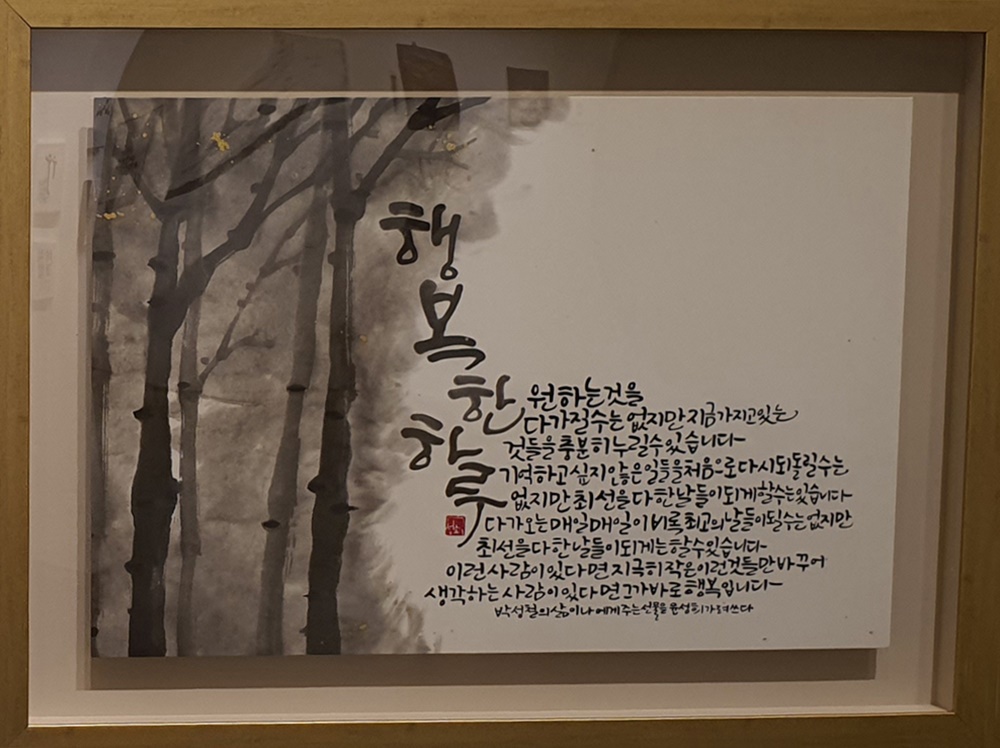 행복한 하루
원하는것을
다가질수는 없지만 지금가지고있는
것들을 충분히 누릴수있습니다
기억하고싶지않은일들을처음으로다시되돌릴수는
없지만 최선을다한날들이되게할수는있습니다
다가오는매일매일이비록최고의날들이될수는없지만
최선을다한날들이되게는할수있습니다
이런사람이있다면지극히작은이런것들만바꾸어
생각하는사람이있다면그가바로행복입니다
박성철의삶이나에게주는선물을 쓰다